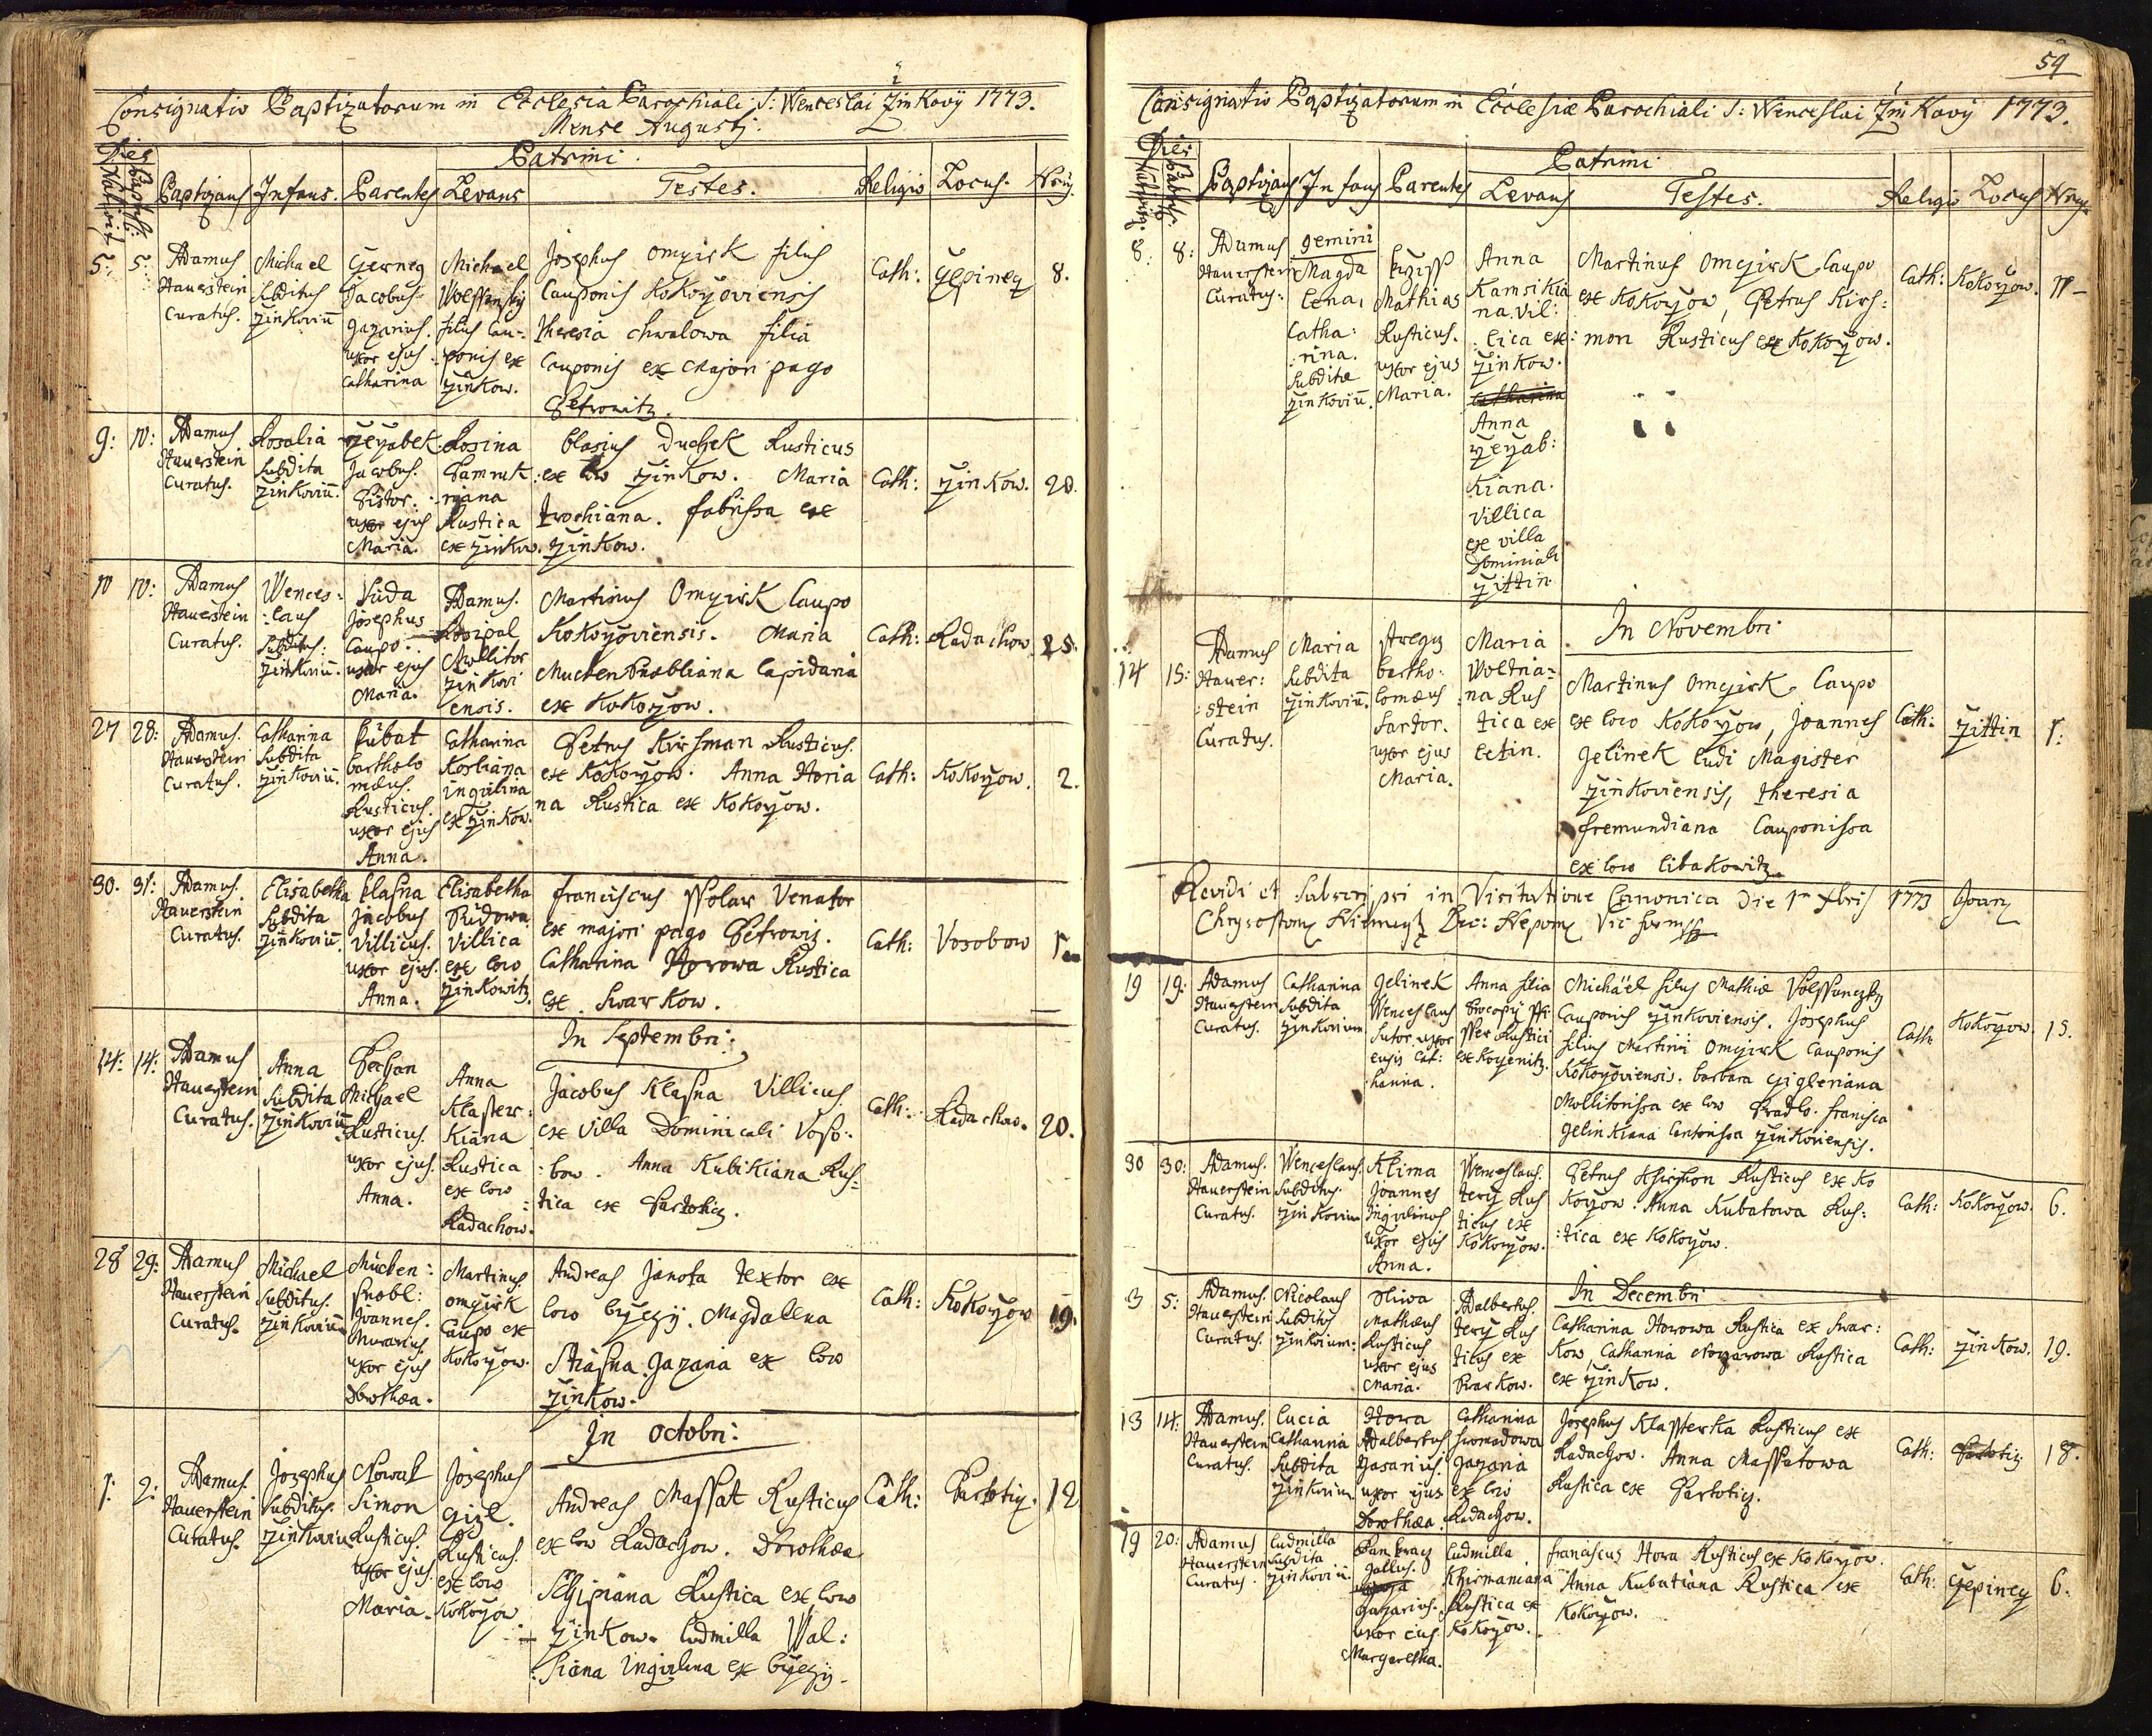 Consignatio Baptizatorum in Ecclesia Parochiali S: Wenceslai Žinkovij 1773.
Mense Augusti.
Dies
Patrini.
Baptizans Infans. Parentes Levans Testes. Religio Locus. Nrus.
5: 5:
Adamus
Hauerstein
Curatus.
Michael
Subditus
Žinkoviū
Jacobus
Gazarius.
uxor ejus
Catharina
Michael
filius Cau-
ponis ex
Žinkow.
Josephus Omejrk filius
Cauponis Kokoržoviensis
Theresia Chwalowa filia
Cauponis ex Majori pago
Petrowitz.
Cath:
Čepinez
8.
9: 10:
Adamus
Hauerstein
Curatus.
Rosalia
Subdita
Žinkoviū.
Jeržabek
Jacobus.
Pistor.
uxor ejus
Maria.
Rosina
Rustica
ex Žinkow.
Blasius Duchek Rusticus
ex loco Žinkow. Maria
Trochiana. fabrissa ex
Žinkow.
Cath:
Žinkow.
20.
10 10:
Adamus
Hauerstein
Curatus.
Wences:
:laus
Subditus:
Žinkoviū.
Josephus
Caupo.
uxor ejus
Maria.
Adamus.
Mollitor
Žinkovi
ensis.
Martinus Omejrk Caupo
Kokoržoviensis. Maria
Muckenschnabliana Lapidaria
ex Kokoržow.
Cath:
Radachow.
25.
27 28:
Adamus.
Hauerstein
Curatus.
Catharina
Subdita
Žinkoviū
Kubat
Bartholo
mæus.
Rusticus.
uxor ejus
Anna.
Catharina
Korliana
inquilina
ex Žinkow.
Petrus Kirschman Rusticus.
ex Kokoržow. Anna Horia
na Rustica ex Kokoržow.
Cath:
Kokoržow.
2.
30. 31:
Adamus.
Hauerstein
Curatus.
Elisabetha
Subdita
Žinkoviū.
Klasna
Jacobus
Villicus.
uxor ejus.
Anna.
Elisabetha
Rudowa
Villica
ex loco
Žinkowitz.
Franciscus Scholar Venator
ex majori pago Petrowiz.
Catharina Horowa Rustica
ex Swarkow.
Cath:
Vosobow
In Septembri:
14: 14:
Adamus
Hauerstein
Curatus.
Anna
Subdita
Žinkoviū
Michael
Rusticus.
uxor ejus.
Anna.
Anna
Klaster:
Kiana
Rustica
ex loco
Radachow.
Jacobus Klasna Villicus.
ex Villa Dominicali Voso:
:bow. Anna Kubikiana Rus=
:tica ex Partotiz.
Cath:
Radachow.
20.
28 29:
Adamus
Hauerstein
Curatus.
Michael
Subditus.
Žinkoviū
Mucken:
schnobl:
Joannes.
Murarius.
uxor ejus
Dorothæa.
Martinus
Omejrk
Caupo ex
Kokoržow.
Andreas Janota Textor ex
loco Bržezÿ. Magdallena
Strasna Gazaria ex loco
Žinkow.
Cath:
Kokoržow
19.
In Octobri:
1. 2:
Adamus.
Hauerstein
Curatus.
Josephus
Subditus.
Žinkoviū
Nowak
Simon
Rusticus.
uxor ejus.
Maria.
Josephus
Rusticus.
ex loco
Kokoržow
Andreas Massat Rusticus
ex loco Radachow. Dorothæa
Schipiana Rustica ex loco
Žinkow. Ludmilla Wal:
:schiana Inquilina ex Bržezÿ.
Cath:
Partotiz.
12.
59
Consignatio Baptizatorum in Ecclesiæ Parochiali S: Wenceslai Žinkovij 1773.
Dies
Patrini
Baptizans Infans Parentes Levans Testes. Religio Locus Nrus
8: 8:
Adamus
Hauerstein
Curatus:
gemini
Magda
lena,
Catha:
:rina.
Subditæ
Žinkoviū.
Mathias
Rusticus.
uxor ejus
Maria.
Anna
Kamsikia
na, Vil:
:lica ex
Žinkow.
Catharina
Anna
Jeržab:
Kiana.
Villica
ex villa
Dominiali
Žittin.
Martinus Omejrk, Caupo
ex Kokoržow, Petrus Kirs:
:mon Rusticus ex Kokoržow.
Cath:
Kokoržow.
In Novembri
14 15:
Adamus
Hauer:
:stein
Curatus.
Maria
Subdita
Žinkoviū.
Bartho:
lomæus
Sartor.
uxor ejus
Maria.
Maria
na Rus
tica ex
Letin.
Martinus Omejrk, Caupo
ex loco Kokoržow, Joannes
Gelinek ludi Magister
Žinkoviensis, Theresia
Fremundiana Cauponissa
ex loco Libakowitz.
Cath:
Žittin
1:
Revidi et subscripsi in Visitatione Canonica Die 1ª Xbris 1773
19 19:
Adamus
Hauerstein
Curatus.
Catharina
Subdita
Žinkovium
Gelinek
Wenceslaus
Sutor, uxor
ejus Cat:
harina.
Anna filia
Procopij
Rustici
Michäel filius Mathiæ
Cauponis Žinkoviensis. Josephus
filius Martini Omejrk Cauponis
Kokoržoviensis. Barbara Zigleriana
Mollitorissa ex loco Francisca
Gelinkiana Cantorissa Žinkoviensis.
Cath
Kokoržow.
15.
30 30:
Adamus.
Hauerstein
Curatus.
Wenceslaus.
Subditus.
Žinkovium
Klima
Joannes
Inquilinus
uxor ejus
Anna.
Wenceslaus.
Terž Rus
ticus ex
Kokoržow.
Petrus Rusticus ex Ko
koržow. Anna Kubatowa Rus:
:tica ex Kokoržow.
Cath:
Kokoržow.
6.
In Decembri
3 5:
Adamus.
Hauerstein
Curatus.
Nicolaus
Subditus
Žinkovium:
Sliwa
Mathæus
Rusticus
uxor ejus
Maria.
Adalbertus.
Terž Rus
ticus ex
Swarkow.
Catharina Horowa Rustica ex Swar:
kow, Catharina Rustica
ex Žinkow.
Cath:
Žinkow.
19.
13 14:
Adamus.
Hauerstein
Curatus.
Lucia
Catharina
Subdita
Žinkovium
Hora
Adalbertus
Gasarius.
uxor ejus
Dorothæa.
Catharina
Hromadowa
Gazaria
ex loco
Radachow.
Josephus Klasterka Rusticus ex
Radachow. Anna Massatowa
Rustica ex Partotiz.
Cath:
Partotiz
18.
19 20:
Adamus
Hauerstein
Curatus.
Ludmilla
Subdita
Žinkoviū.
Pankraz
Gallus.
Gazarius.
uxor ejus
Margaretha.
Ludmilla
Khirmaniana
Rustica ex
Kokoržow.
Franciscus Hora Rusticus ex Kokoržow.
Anna Kubatiana Rustica ex
Kokoržow.
Cath:
Čepinez
6.